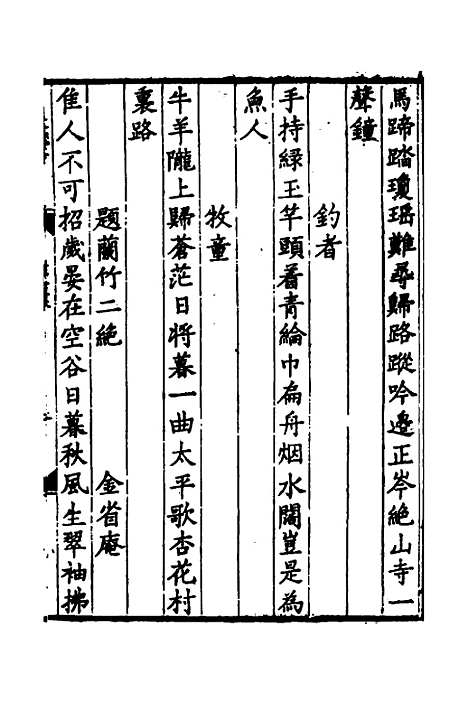 馬蹄踏瓊瑶難尋歸路蹤吟邊正岑絶山寺一
聲鐘
釣者
手持緑玉竿頭着青綸巾扁舟烟水闊豈是為
魚人
牧童
牛羊隴上歸蒼茫日將暮一曲太平歌杏花村
裏路
題蘭竹二絶 金省庵
隹人不可招歲晏在空谷日暮秋風生翠袖拂